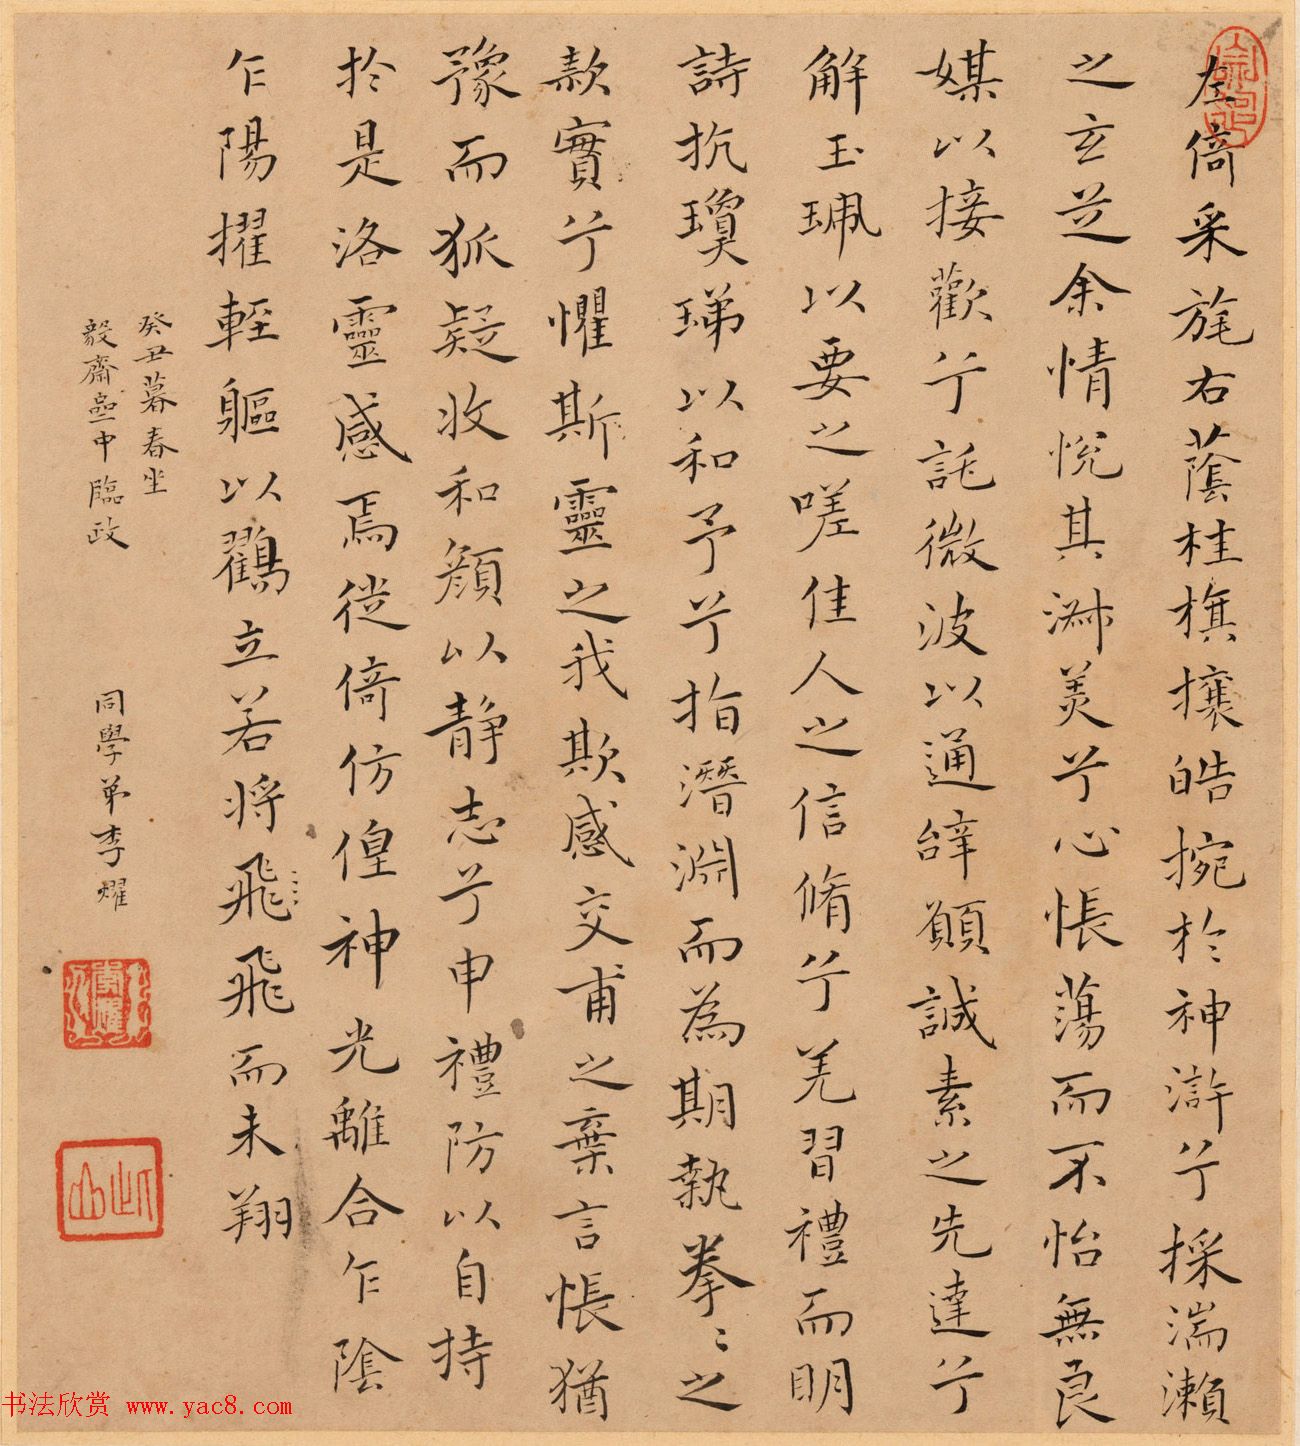 左倚采旄右蔭桂旗攘皓捥於神滸兮採湍瀨
之玄芝余情悅其淑美兮心悵蕩而不怡無良
媒以接歡兮託微波以通辭願誠素之先達兮
解玉珮以要之嗟佳人之信脩兮羌習禮而明
詩抗瓊珶以和予兮指潛淵而為期執拳〻之
款實兮懼斯靈之我欺感交甫之棄言悵猶
豫而狐疑收和顏以靜志兮申禮防以自持
於是洛靈感焉徙倚仿偟神光離合乍陰
乍陽擢輕軀以鶴立若將飛飛而未翔
癸丑暮春坐
毅齋壺中臨政
同學弟李燿
书法欣赏 www.yac8.com